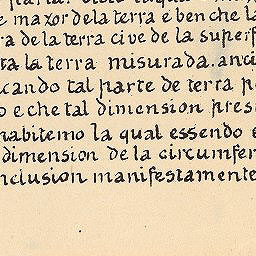 e maxor dela terra e ben che la
ra de la terra cive de la superf
ta la terra misurada. anci
cando tal parte de terra p
o e che tal dimension pres
habitemo la qual essendo e
dimension de la circumfer
nclusion manifestamente